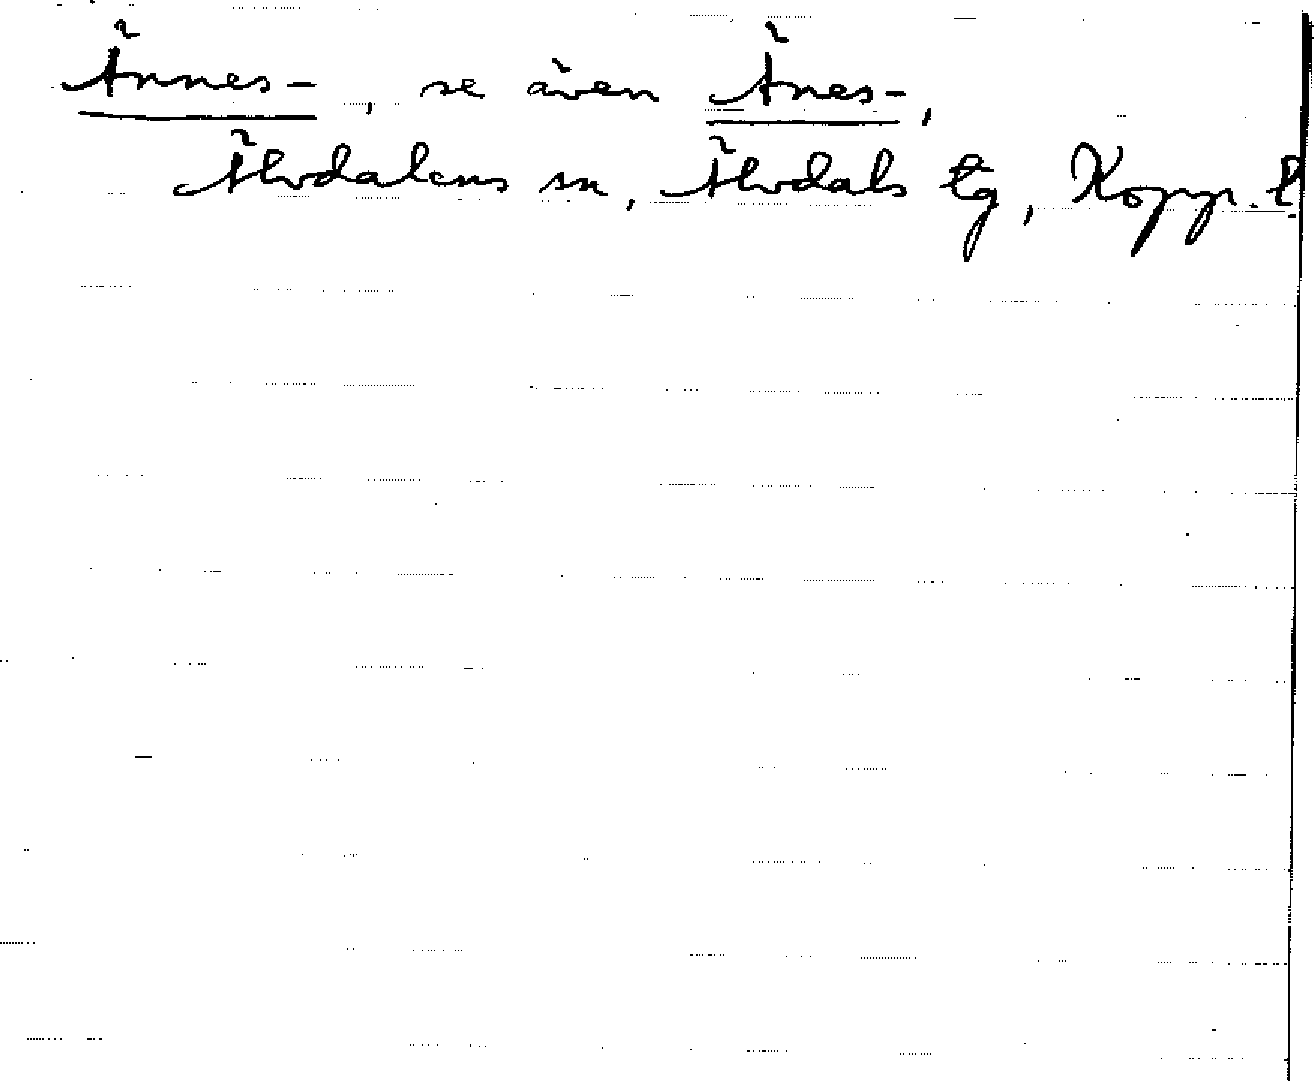 Ännes-, se även Änes-,
Älvdalens sn, Älvdals tg, Kopp. l